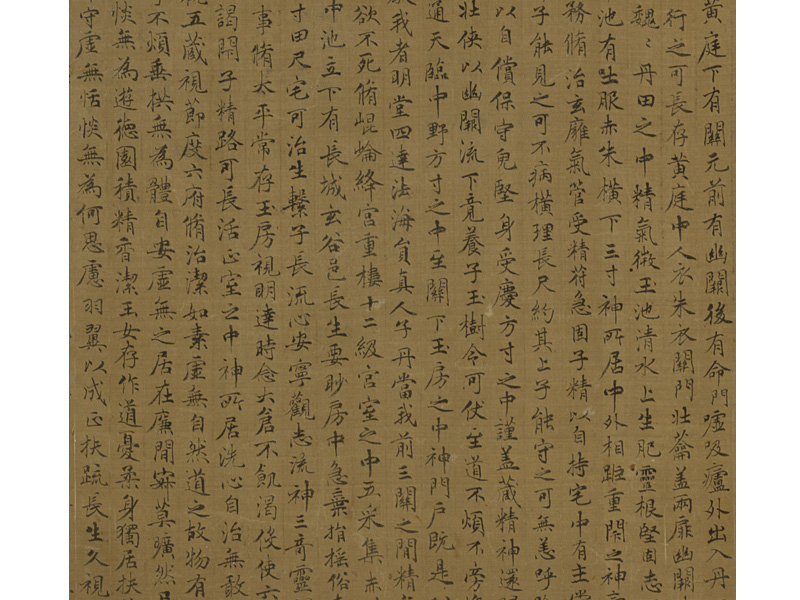 黃庭下有關元前有幽闕後有命門噓吸廬外出入丹
行之可長存黃庭中人衣朱衣關門壯蘥蓋兩扉幽闕
魏〻丹田之中精氣微玉池清水上生肥靈根堅固志
池有士服赤朱橫下三寸神所居中外相距重閇之神
務脩治玄廱氣管受精符急固子精以自持宅中有士常
子能見之可不病橫理長尺約其上子能守之可無恙呼
以自償保守皃堅身受慶方寸之中謹蓋蔵精神還
壯俠以幽闕流下竟養子玉樹令可伏至道不煩不旁
通天臨中野方寸之中至關下玉房之中神門戶既是
我者明堂四達法海員真人子丹當我前三關之閒精
欲不死脩崐崘絳宮重樓十二級宮室之中五采集赤
中池立下有長城玄谷邑長生要眇房中急棄捐搖俗
寸田尺宅可治生繫子長流心安寧觀志流神三奇靈
事脩太平常存玉房視明達時念大倉不飢渴役使六
謁閇子精路可長活正室之中神所居洗心自治無敢
五蔵視節度六府脩治潔如素虛無自然道之故物有
不煩垂拱無為體自安虛無之居在廉閒寂莫曠然
惔無為遊德園積精香潔玉女存作道憂柔身獨居扶
守虛無恬惔無為何思慮羽翼以成正扶疏長生久視